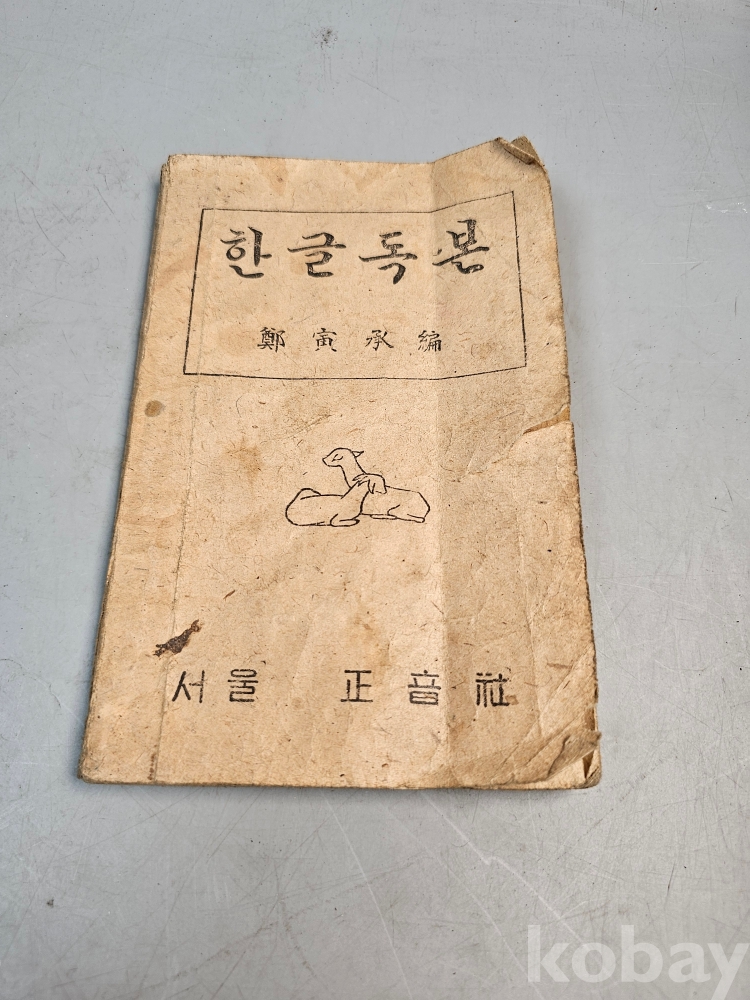 한글독본
鄭寅承編
서울 正音社
kobay